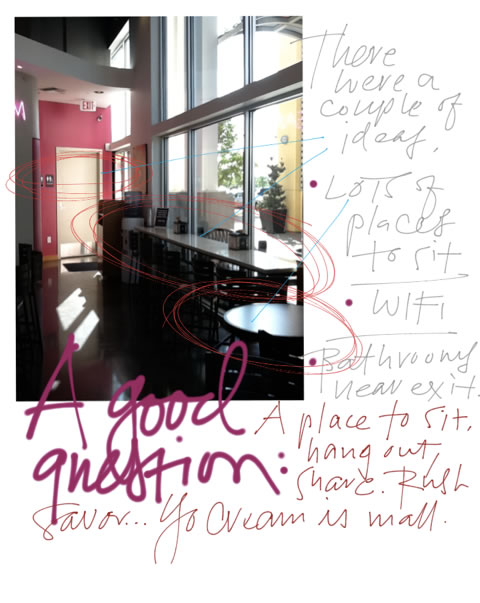 M
EXIT
There
were a
couple of
ideas.
• LOTS of
places
to sit
• WIFI
• Bathrooms
near exit.
A good
question:
A place to sit,
hang out,
share. Rush
savor... Yo Cream is mall.